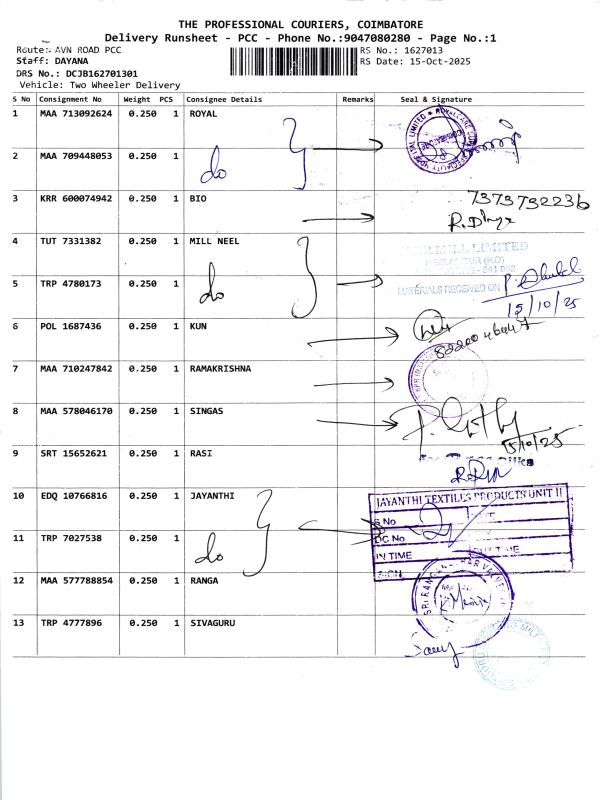 THE PROFESSIONAL COURIERS, COIMBATORE
Delivery Runsheet - PCC - Phone No.:9047080280 - Page No.:1
Route: AVN ROAD PCC
RS No.: 1627013
Staff: DAYANA
RS Date: 15-Oct-2025
DRS No.: DCJB162701301
Vehicle: Two Wheeler Delivery
S No Consignment No Weight PCS Consignee Details Remarks Seal & Signature
1 MAA 713092624 0.250 1 ROYAL
2 MAA 709448053 0.250 1 do
3 KRR 600074942 0.250 1 BIO 7373732236
4 TUT 7331382 0.250 1 MILL NEEL
MILL LIMITED
5 TRP 4780173 0.250 1 do MATERIALS RECEIVED ON
15/10/25
6 POL 1687436 0.250 1 KUN
7 MAA 710247842 0.250 1 RAMAKRISHNA
8 MAA 578046170 0.250 1 SINGAS
15/10/25
9 SRT 15652621 0.250 1 RASI
10 EDQ 10766816 0.250 1 JAYANTHI
JAYANTHI TEXTILES PRODUCTS UNIT II
S No
DC No
11 TRP 7027538 0.250 1 do
IN TIME OUT TIME
SIGN
12 MAA 577788854 0.250 1 RANGA
13 TRP 4777896 0.250 1 SIVAGURU